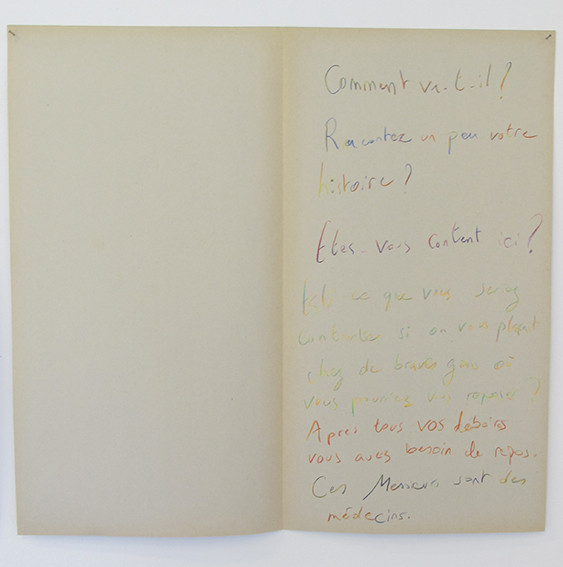 Comment va-t-il?
Racontez un peu votre
histoire?
Etes-vous content ici?
Est ce que vous seriez
contente si on vous plaçait
chez de braves gens où
vous pourriez vous reposer?
Apres tous vos déboires
vous avez besoin de repos.
Ces Messieurs sont des
médecins.